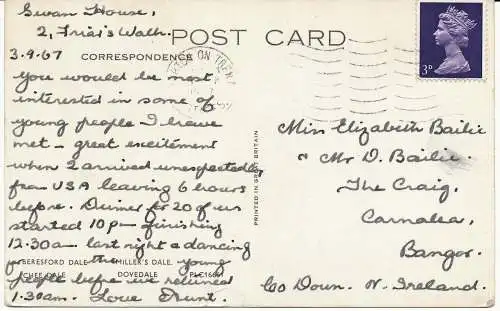 Swan House,
2, Friar's Walk.
POST CARD
3.9.67
CORRESPONDENCE
You would be most
interested in some of
young people I have
met - great excitement
when 2 arrived unexpectedly
from USA leaving 6 hours
before. Dinner for 20 of us
started 10p - finishing
12-30am - last night a dancing
BERESFORD DALE MILLER'S DALE
for the young
CHEE DALE DOVEDALE
people before we returned
1.30am. Love Aunt.
PRINTED IN GREAT BRITAIN
ON TRENT
3D
Miss Elizabeth Bailie
Mr D. Bailie.
The Craig.
Carnalea,
Bangor.
Co Down. N. Ireland.